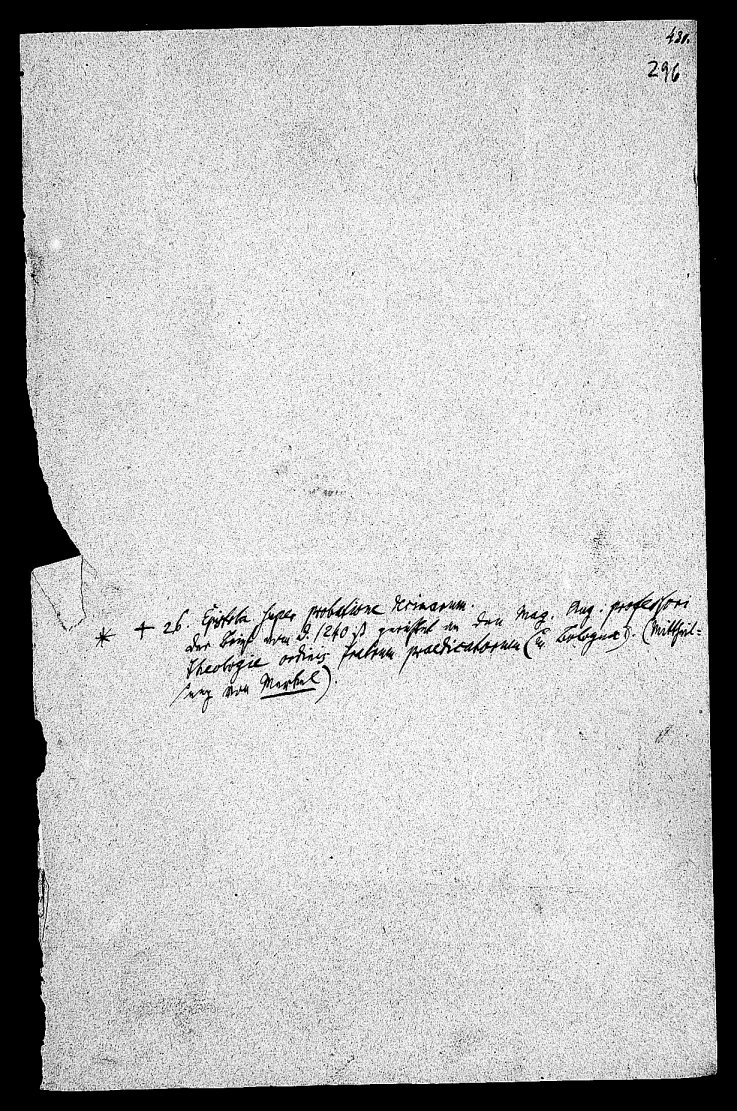 431.
296
* + 26. Epistola super probatione urinarum.
der Brief vom J. 1240 ist gerichtet an den Mag. Aug. professori
theologie ordinis fratrum praedicatorum (in Bologna). (Mittheil-
lung von Merkel).